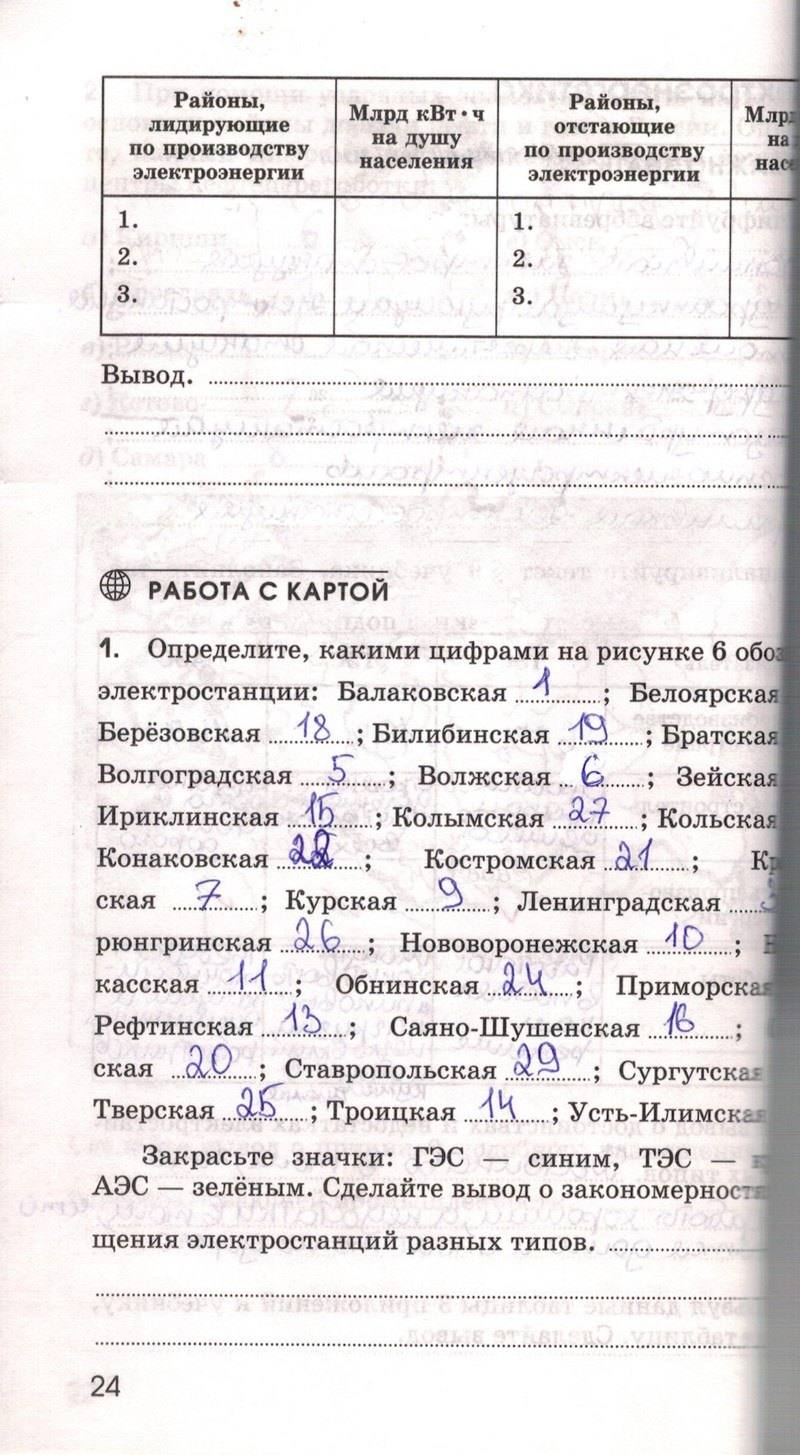 Районы, лидирующие по производству электроэнергии
Млрд кВт·ч на душу населения
Районы, отстающие по производству электроэнергии
1.
2.
3.
1.
2.
3.
Вывод.
РАБОТА С КАРТОЙ
1. Определите, какими цифрами на рисунке 6
электростанции: Балаковская 1; Белоярская
Берёзовская 18; Билибинская 19; Братская
Волгоградская 5; Волжская 6; Зейская
Ириклинская 15; Колымская 27; Кольская
Конаковская 22; Костромская 21;
ская 7; Курская 9; Ленинградская
рюнгринская 26; Нововоронежская 10;
касская 11; Обнинская 24; Приморская
Рефтинская 13; Саяно-Шушенская 16;
ская 20; Ставропольская 29; Сургутская
Тверская 25; Троицкая 14; Усть-Илимская
Закрасьте значки: ГЭС — синим, ТЭС —
АЭС — зелёным. Сделайте вывод о
щения электростанций разных типов.
24